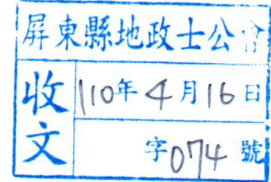 屏東縣地政士公會
收文
110年4月16日
字074號